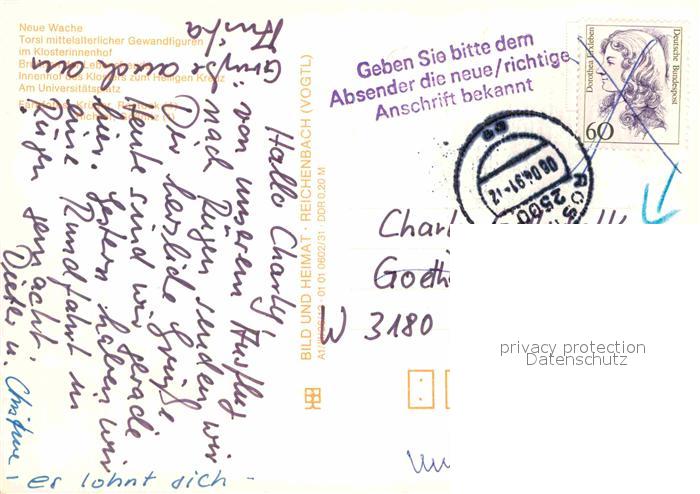 Neue Wache
Torsi mittelalterlicher Gewandfiguren
im Klosterinnenhof
Innenhof des Klosters zum Heiligen Kreuz
Am Universitätsplatz
Hallo Charly!
von unserem Ausflug
nach Rügen senden wir
Dir herzliche Grüße.
Heute sind wir gerade
hier. Gestern haben wir
eine Rundfahrt in
Rügen gemacht.
Dieter u. Christine
- es lohnt sich -
Grüße auch an
BILD UND HEIMAT · REICHENBACH (VOGTL)
01 01 0602/31 · DDR 0,20 M
Geben Sie bitte dem
Absender die neue/richtige
Anschrift bekannt
Dorothea Erxleben
Deutsche Bundespost
60
2500
W 3180
privacy protection
Datenschutz